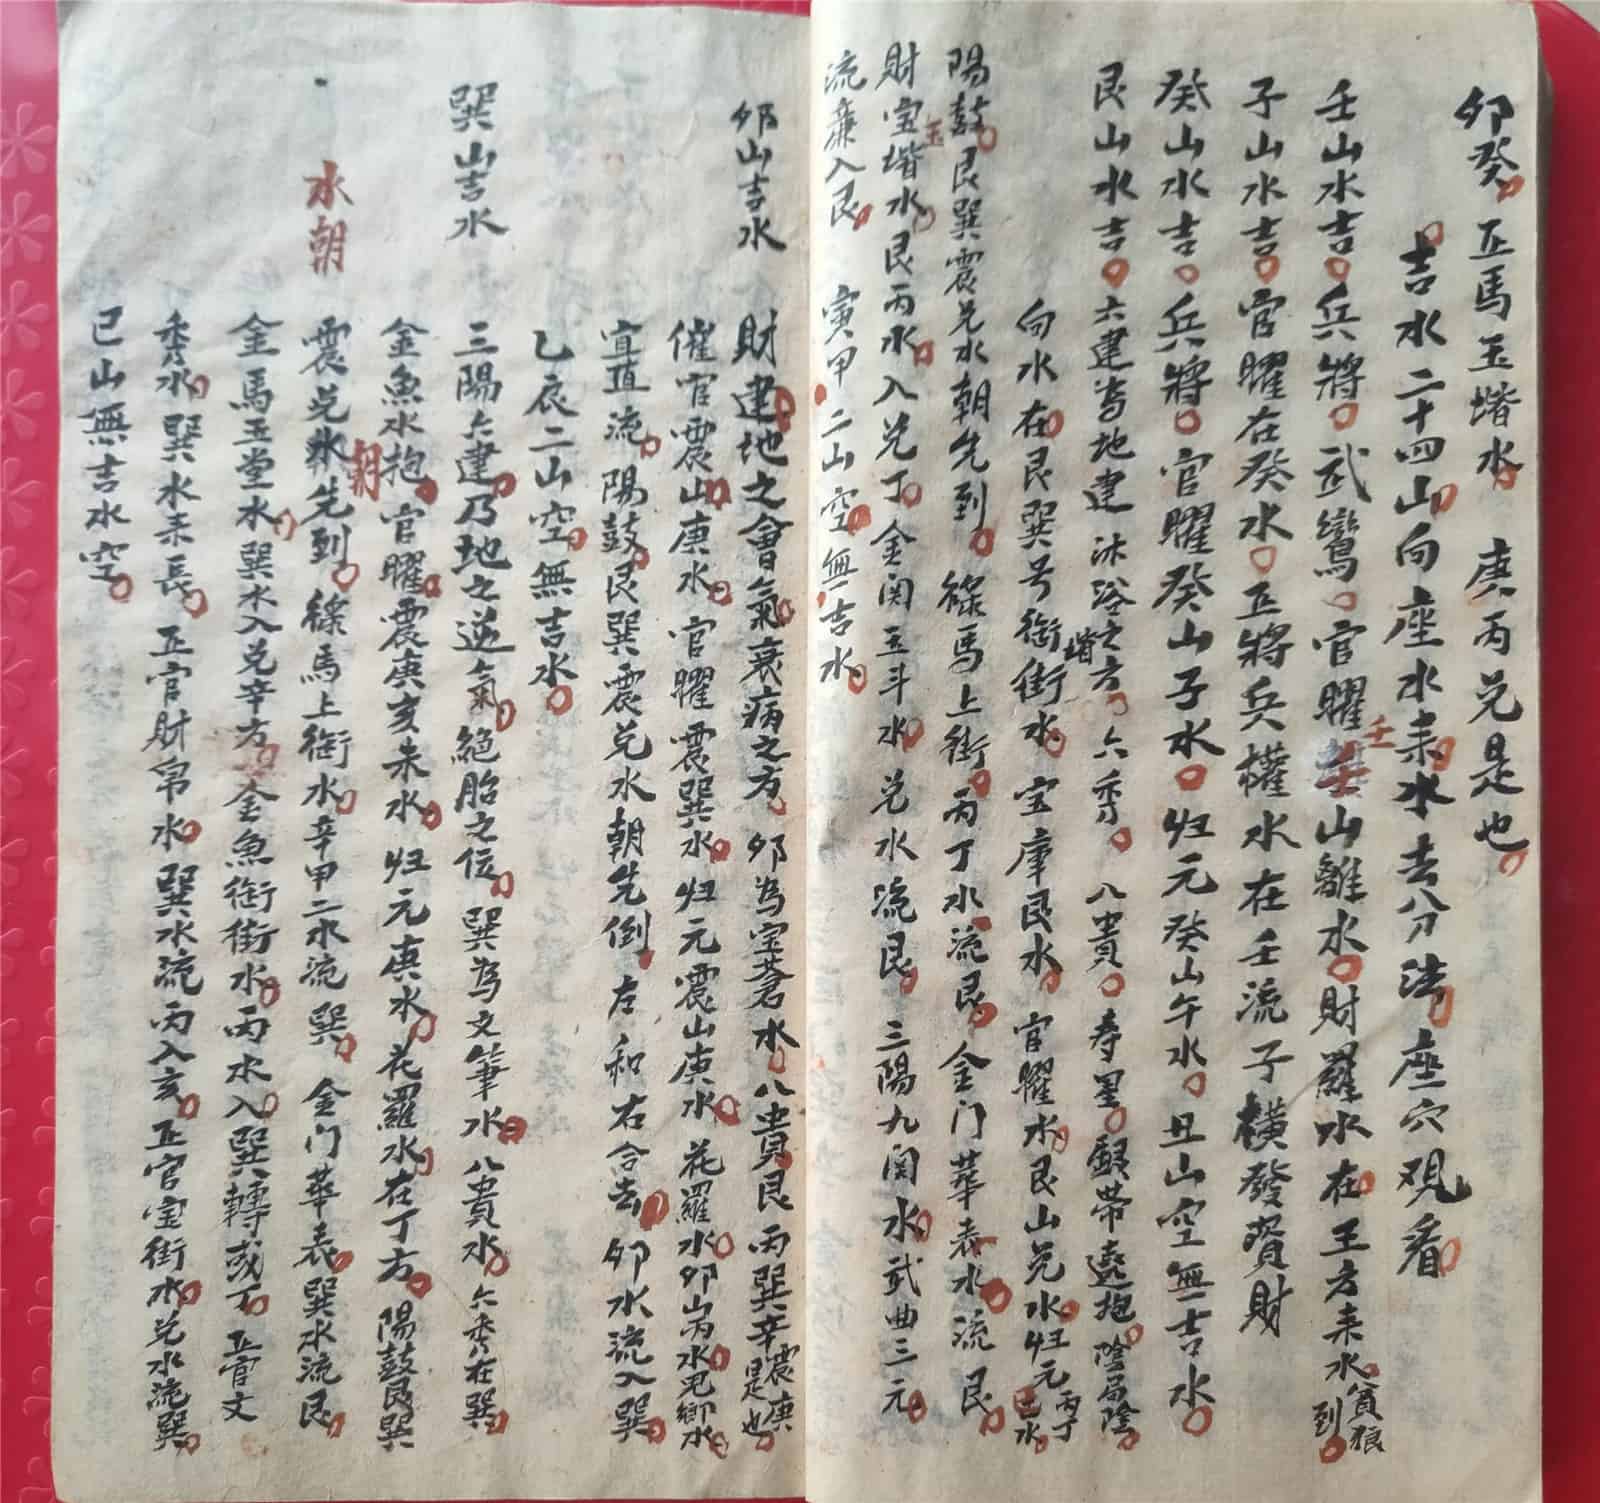 卯癸。正馬玉堦水。庚丙兌是也。
吉水二十四山向座水来水去八分法。座穴观看
壬山水吉。兵將。武鸞。官曜壬山離水。財羅水在王方来水。貪狼到。
子山水吉。官曜在癸水。正將兵權水在壬流子橫發資財
癸山水吉。兵將。官曜癸山子水。归元癸山午水。丑山空無吉水。
艮山水吉。六建為地建沐浴之方。六秀。八貴。寿星。銀帶遶抱。陰局陰
向水在艮巽号衙街水。宝庫艮水。官曜水。艮山兌水。归元丙丁巳水。
陽鼓。艮巽震兌水朝先到。祿馬上街。丙丁水流艮。金门華表水。流艮。
財宝堦水。艮丙水入兌丁。金関玉斗水。兌水流艮。三陽九関水。武曲三元。
流廉入艮。寅甲二山空。無吉水。
卯山吉水 財建地之會氣衰病之方。卯為宝蒼水。八貴艮丙巽辛震庚是也。
催官震山庚水。官曜震巽水。归元震山庚水。花羅水。卯山丙水。鬼鄉水。
宜直流。陽鼓艮巽震兌水朝先倒。左和右合去。卯水流入巽。
乙辰二山空。無吉水。
巽山吉水 三陽六建乃地之逆氣。絕胎之位。巽為文筆水。八貴水。六秀在巽。
金魚水抱。官曜。震庚亥未水。归元庚水。花羅水。在丁方。陽鼓艮巽
水朝 震兌水朝先到。祿馬上街水。辛甲二水流巽。金门華表。巽水流艮。
金馬玉堂水。巽水入兌辛方。金魚衙街水。丙水入巽轉或丁。正官文
秀水。巽水来長。正官財帛水。巽水流丙入亥。正官宝街水。兌水流巽。
巳山無吉水空。